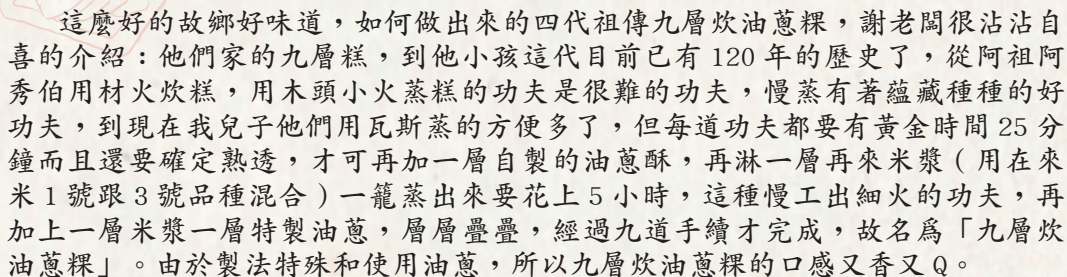 這麼好的故鄉好味道，如何做出來的四代祖傳九層炊油蔥粿，謝老闆很沾沾自
喜的介紹：他們家的九層糕，到他小孩這代目前已有 120 年的歷史了，從阿祖阿
秀伯用材火炊糕，用木頭小火蒸糕的功夫是很難的功夫，慢蒸有著蘊藏種種的好
功夫，到現在我兒子他們用瓦斯蒸的方便多了，但每道功夫都要有黃金時間 25 分
鐘而且還要確定熟透，才可再加一層自製的油蔥酥，再淋一層再來米漿（用在來
米 1 號跟 3 號品種混合）一籠蒸出來要花上 5 小時，這種慢工出細火的功夫，再
加上一層米漿一層特製油蔥，層層疊疊，經過九道手續才完成，故名為「九層炊
油蔥粿」。由於製法特殊和使用油蔥，所以九層炊油蔥粿的口感又香又 Q。